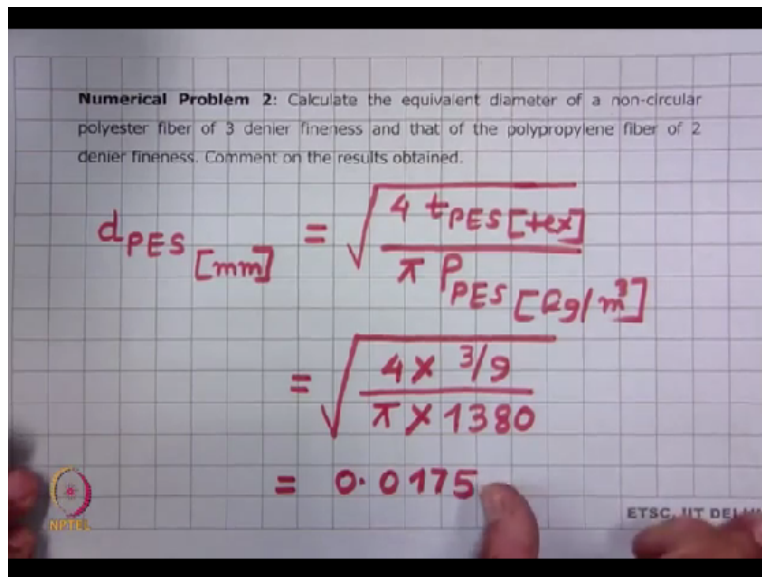 Numerical Problem 2: Calculate the equivalent diameter of a non-circular
polyester fiber of 3 denier fineness and that of the polypropylene fiber of 2
denier fineness. Comment on the results obtained.
d PES [mm] = √(4 t PES [tex] / π ρ PES [kg/m³])
= √(4 × 3/9 / π × 1380)
= 0.0175
NPTEL
ETSC, IIT DELHI